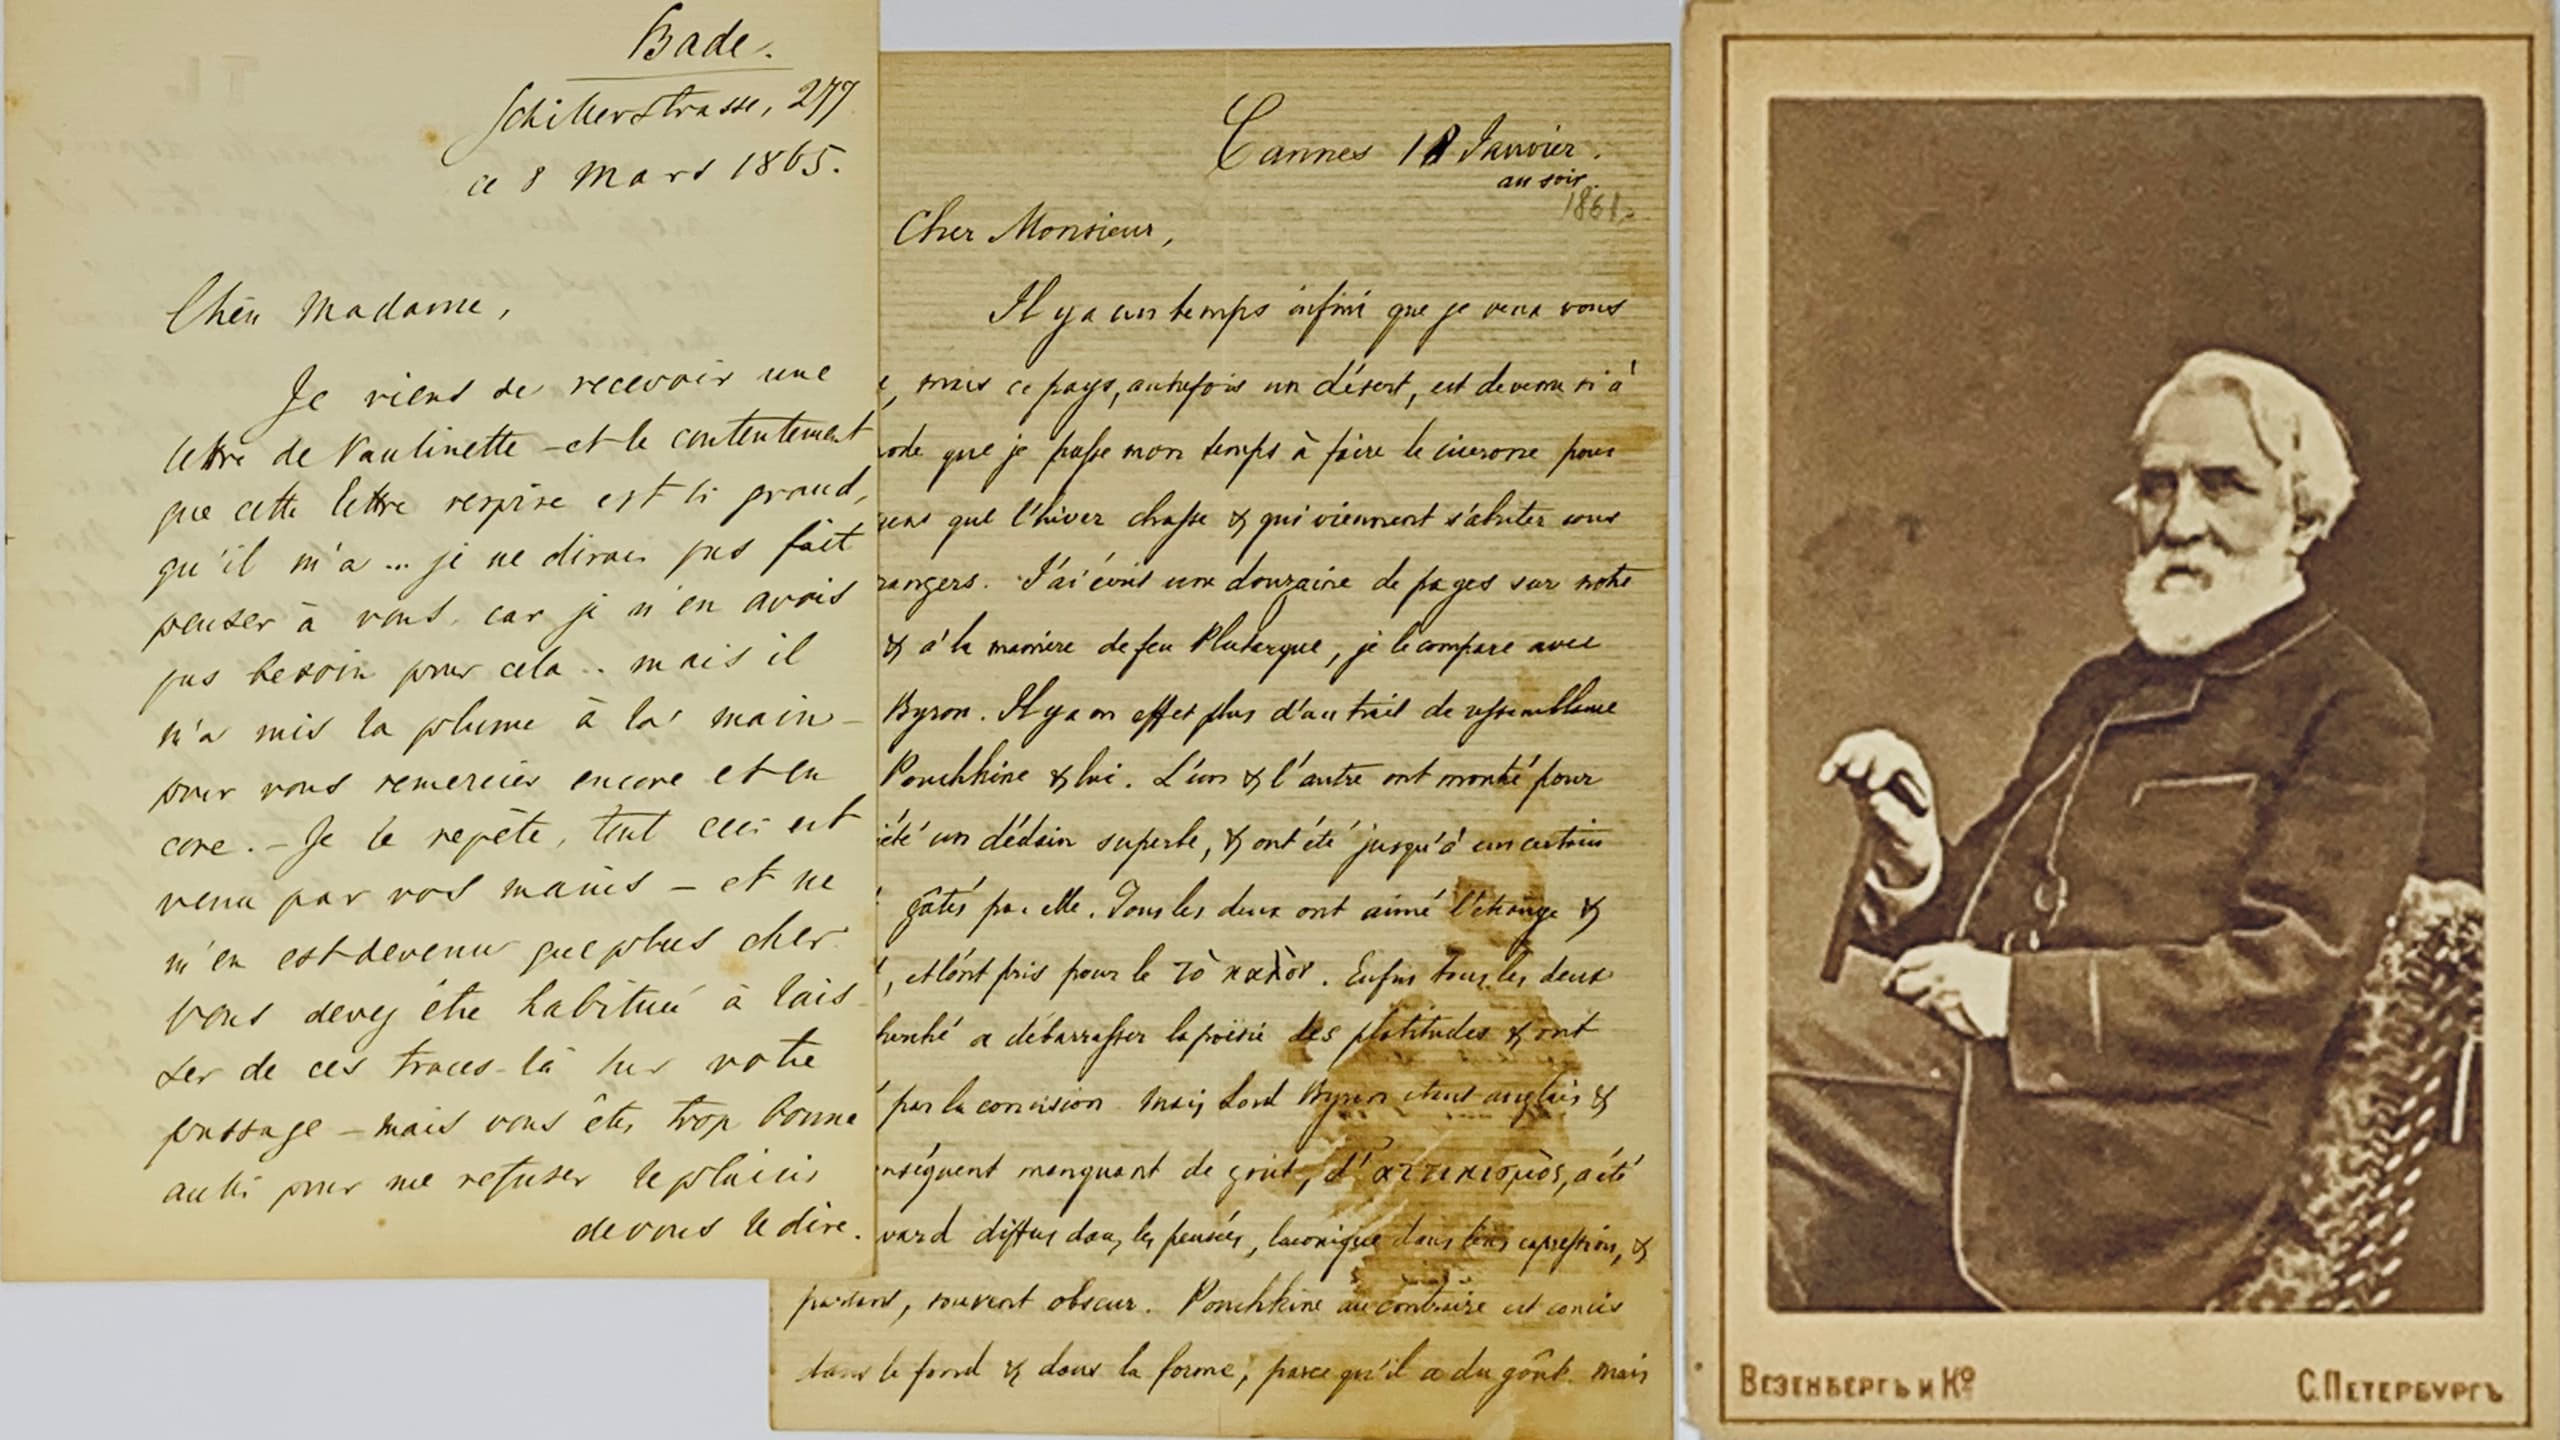 Bade.
Schillerstrasse, 277
ce 8 Mars 1865.
Chère Madame,
Je viens de recevoir une
lettre de Paulinette – et le contentement
que cette lettre respire est si grand,
qu'il m'a ... je ne dirai pas fait
penser à vous, car je n'en avais
pas besoin pour cela .. mais il
m'a mis la plume à la main –
pour vous remercier encore et en
core. – Je le repète, tout ceci est
venu par vos mains – et ne
m'en est devenu que plus cher.
Vous devez être habituée à lais
ser de ces traces-là sur votre
passage – mais vous êtes trop bonne
aussi pour me refuser le plaisir
de vous le dire.
Cannes 18 Janvier.
au soir.
Cher Monsieur,
Il y a un temps infini que je veux vous
, mais ce pays, autrefois un désert, est devenu si à
ode que je passe mon temps à faire le cicerone pour
gens que l'hiver chasse & qui viennent s'abriter sous
rangers. J'ai écrit une douzaine de pages sur notre
& à la manière de feu Plutarque, je le compare avec
Byron. Il y a en effet plus d'un trait de ressemblance
Pouchkine & lui. L'un & l'autre ont montré pour
iété un dédain superbe, & ont été jusqu'à un certain
gâtés par elle. Tous les deux ont aimé l'étrange &
, et l'ont pris pour le τὸ καλὸν. Enfin tous les deux
cherché a débarrasser la poësie des platitudes & ont
par la concision. Mais Lord Byron etant anglais &
nséquent manquant de goût, d'αττικισμὸς, a été
vard diffus dans les pensées, laconique dans leur expression, &
partant, souvent obscur. Pouchkine au contraire est concis
dans le fond & dans la forme, parce qu'il a du goût. Mais
Везенбергъ и Кº
С.Петербургъ